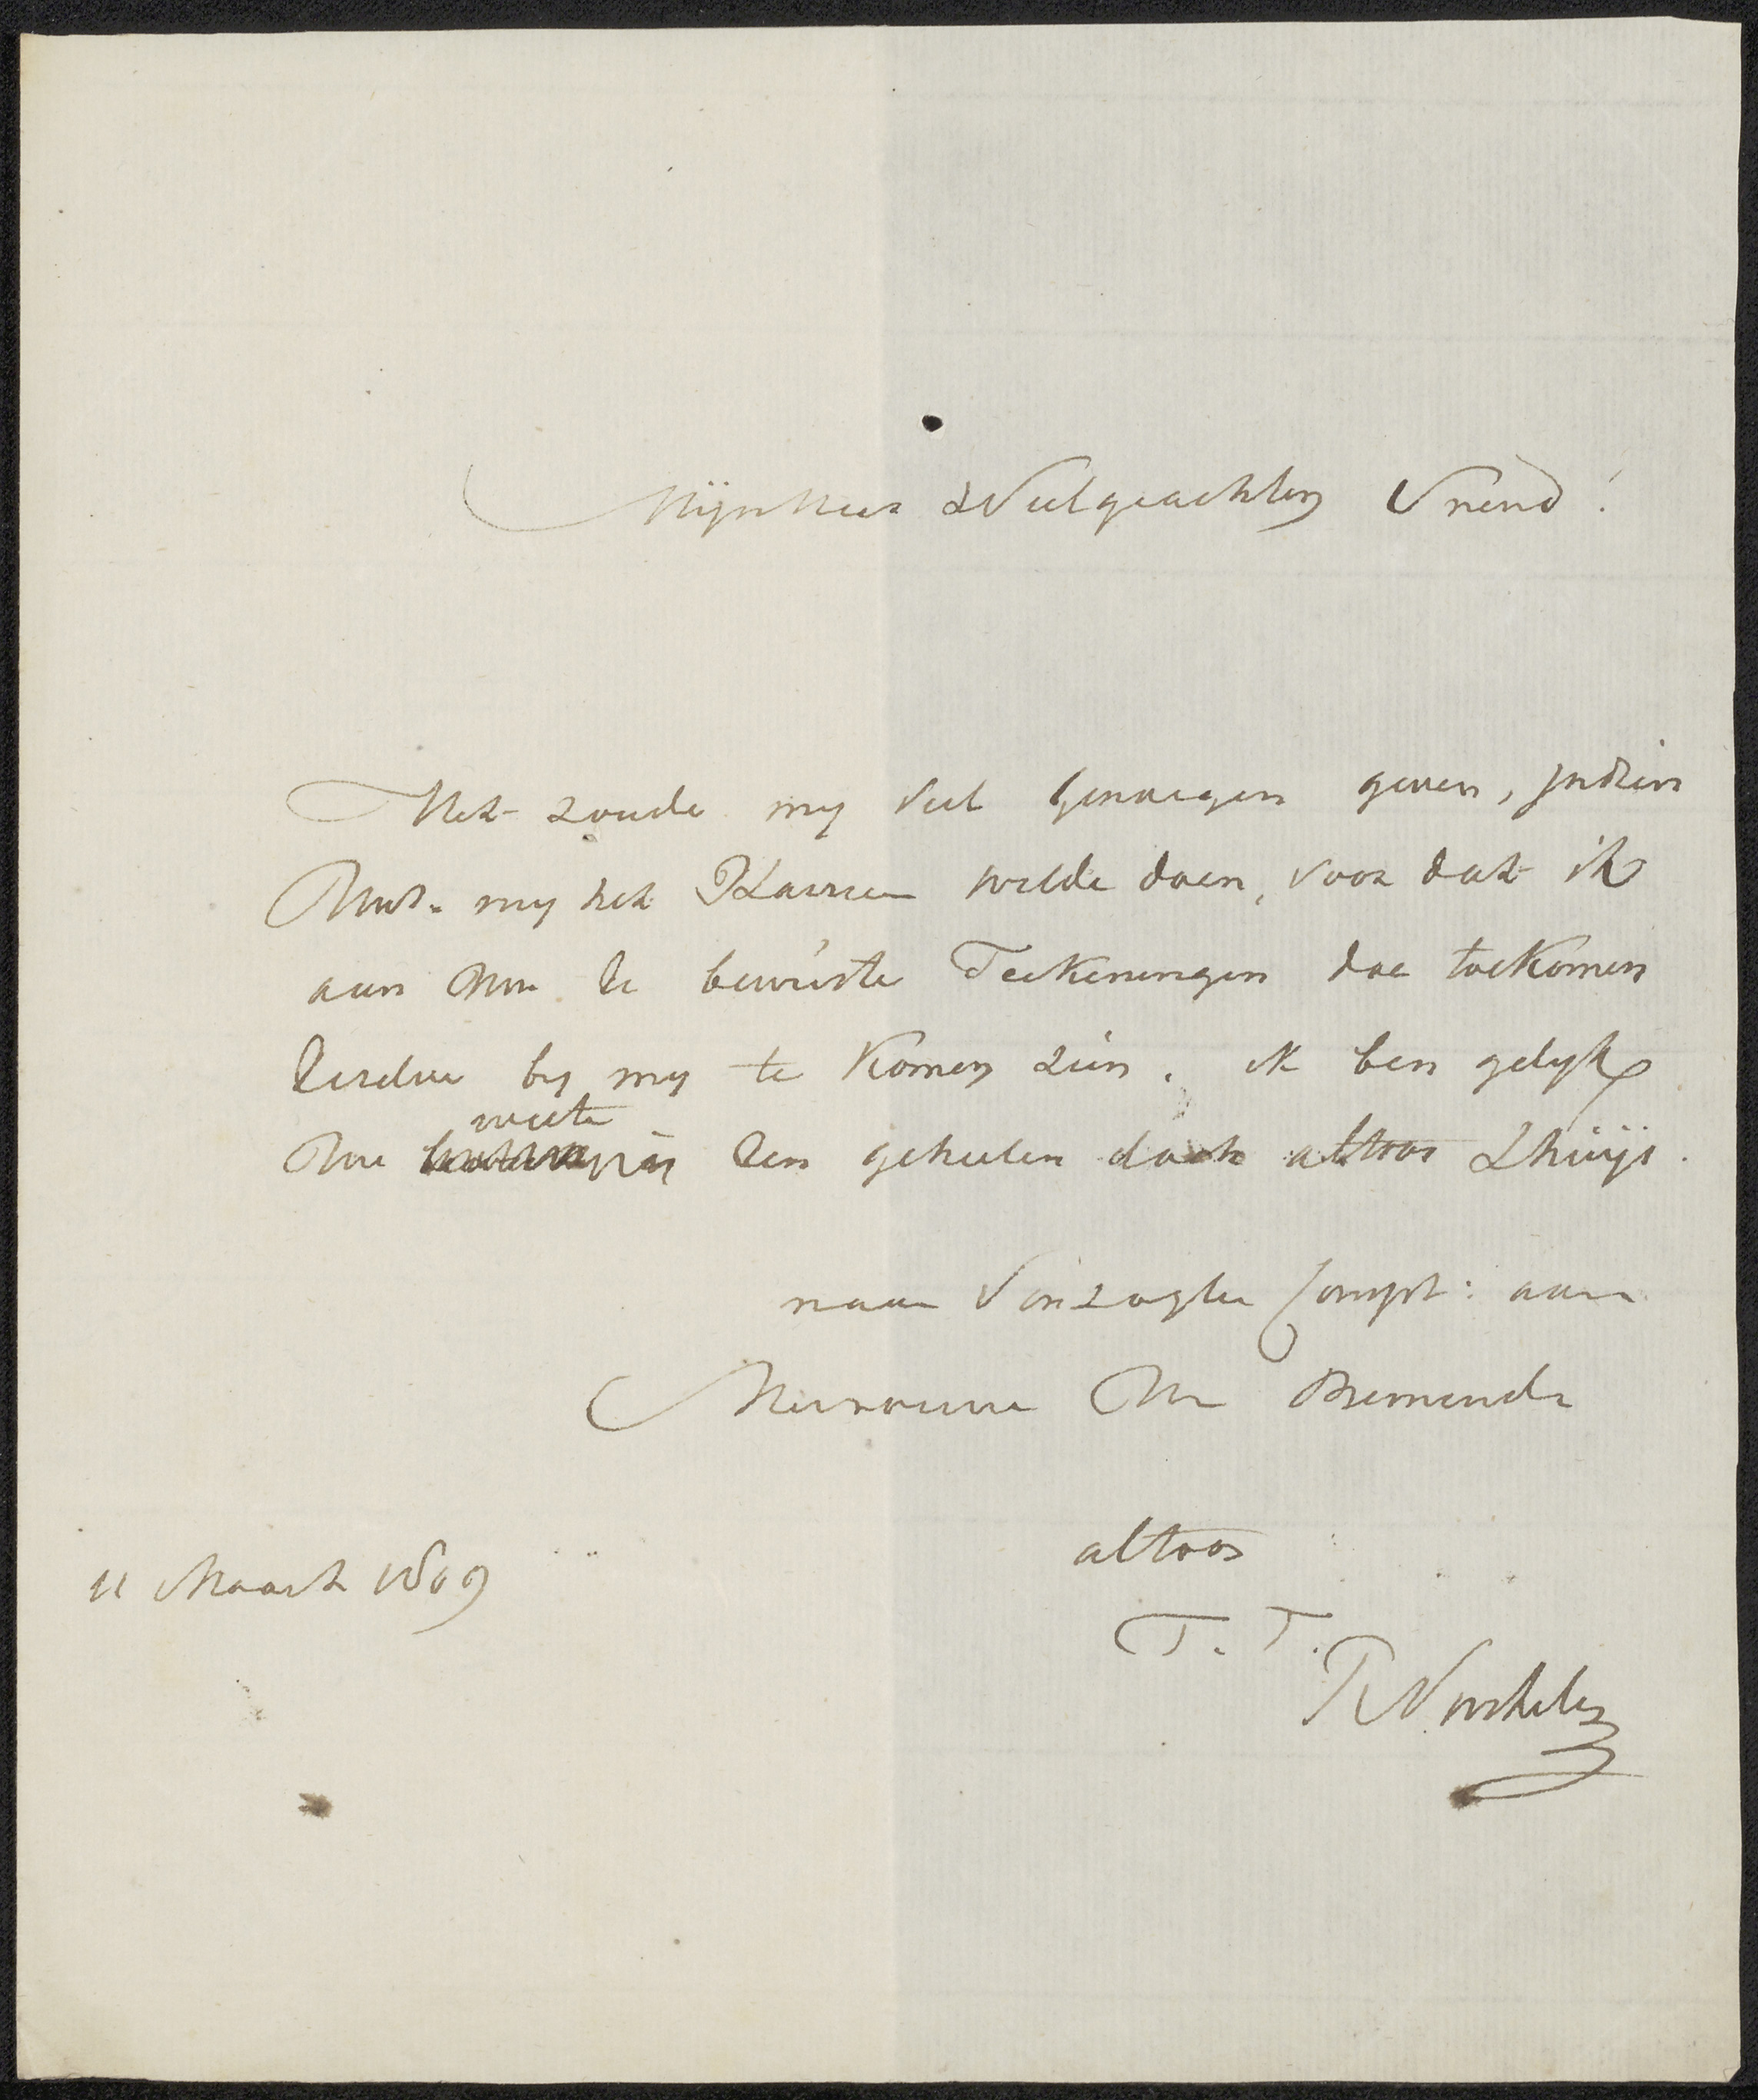 Mijn Heer & Veelgeachten Vriend!
Het zoude my veel genoegen geven, Indien
my het Plaisier wilde doen, voor dat ik
aan de bewuste Teekeningen doe toekomen
dezelve by my te komen zien. ik ben gelyk
weete
den geheelen dach altoos Thuijs.
naar Compt: aan
Mevrouw Beminde
altoos
T. T.
11 Maart 1809